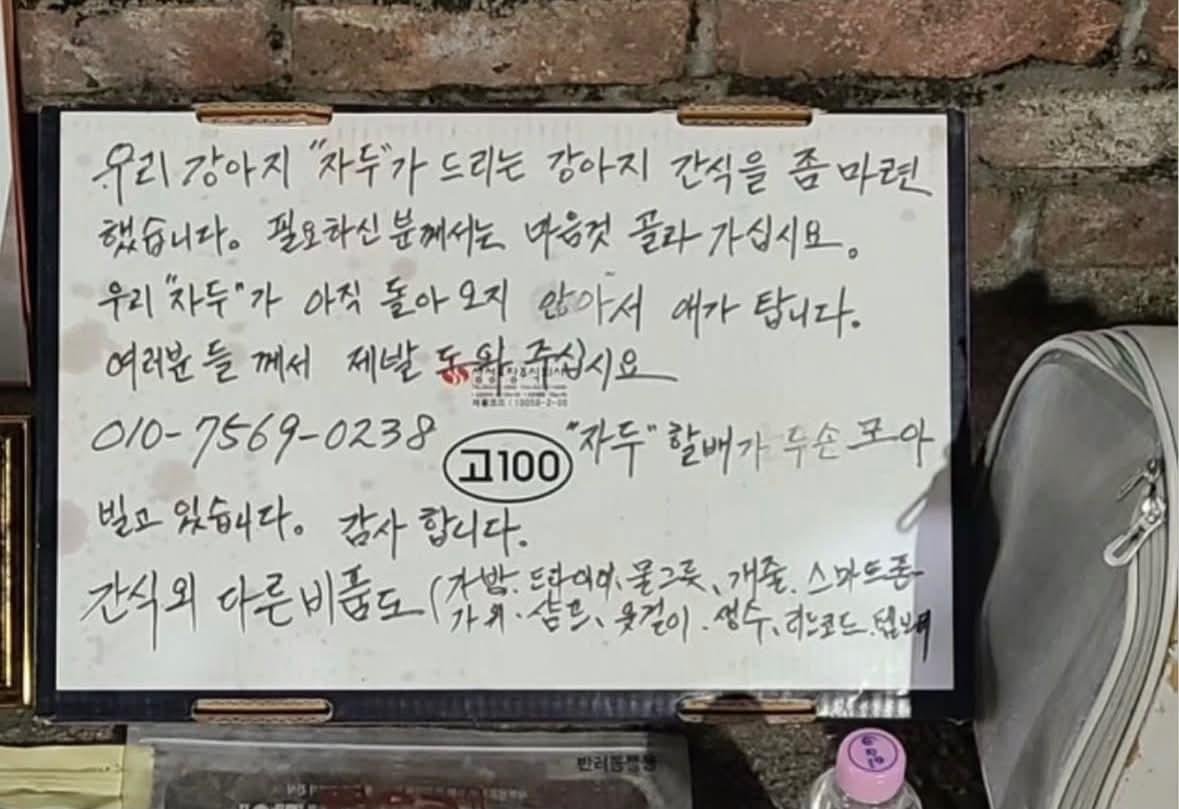 우리 강아지 "자두"가 드리는 강아지 간식을 좀 마련
했습니다. 필요하신 분께서는 마음것 골라 가십시요.
우리 "자두"가 아직 돌아 오지 않아서 애가 탑니다.
여러분들께서 제발 도와 주십시요
010-7569-0238 "자두" 할배가 두손 모아
고100
빌고 있습니다. 감사 합니다.
간식외 다른비품도 (가방. 드라이어. 물그릇, 개줄. 스마트폰
가위. 샴프, 옷걸이. 생수, 리드코드.
반려동물용